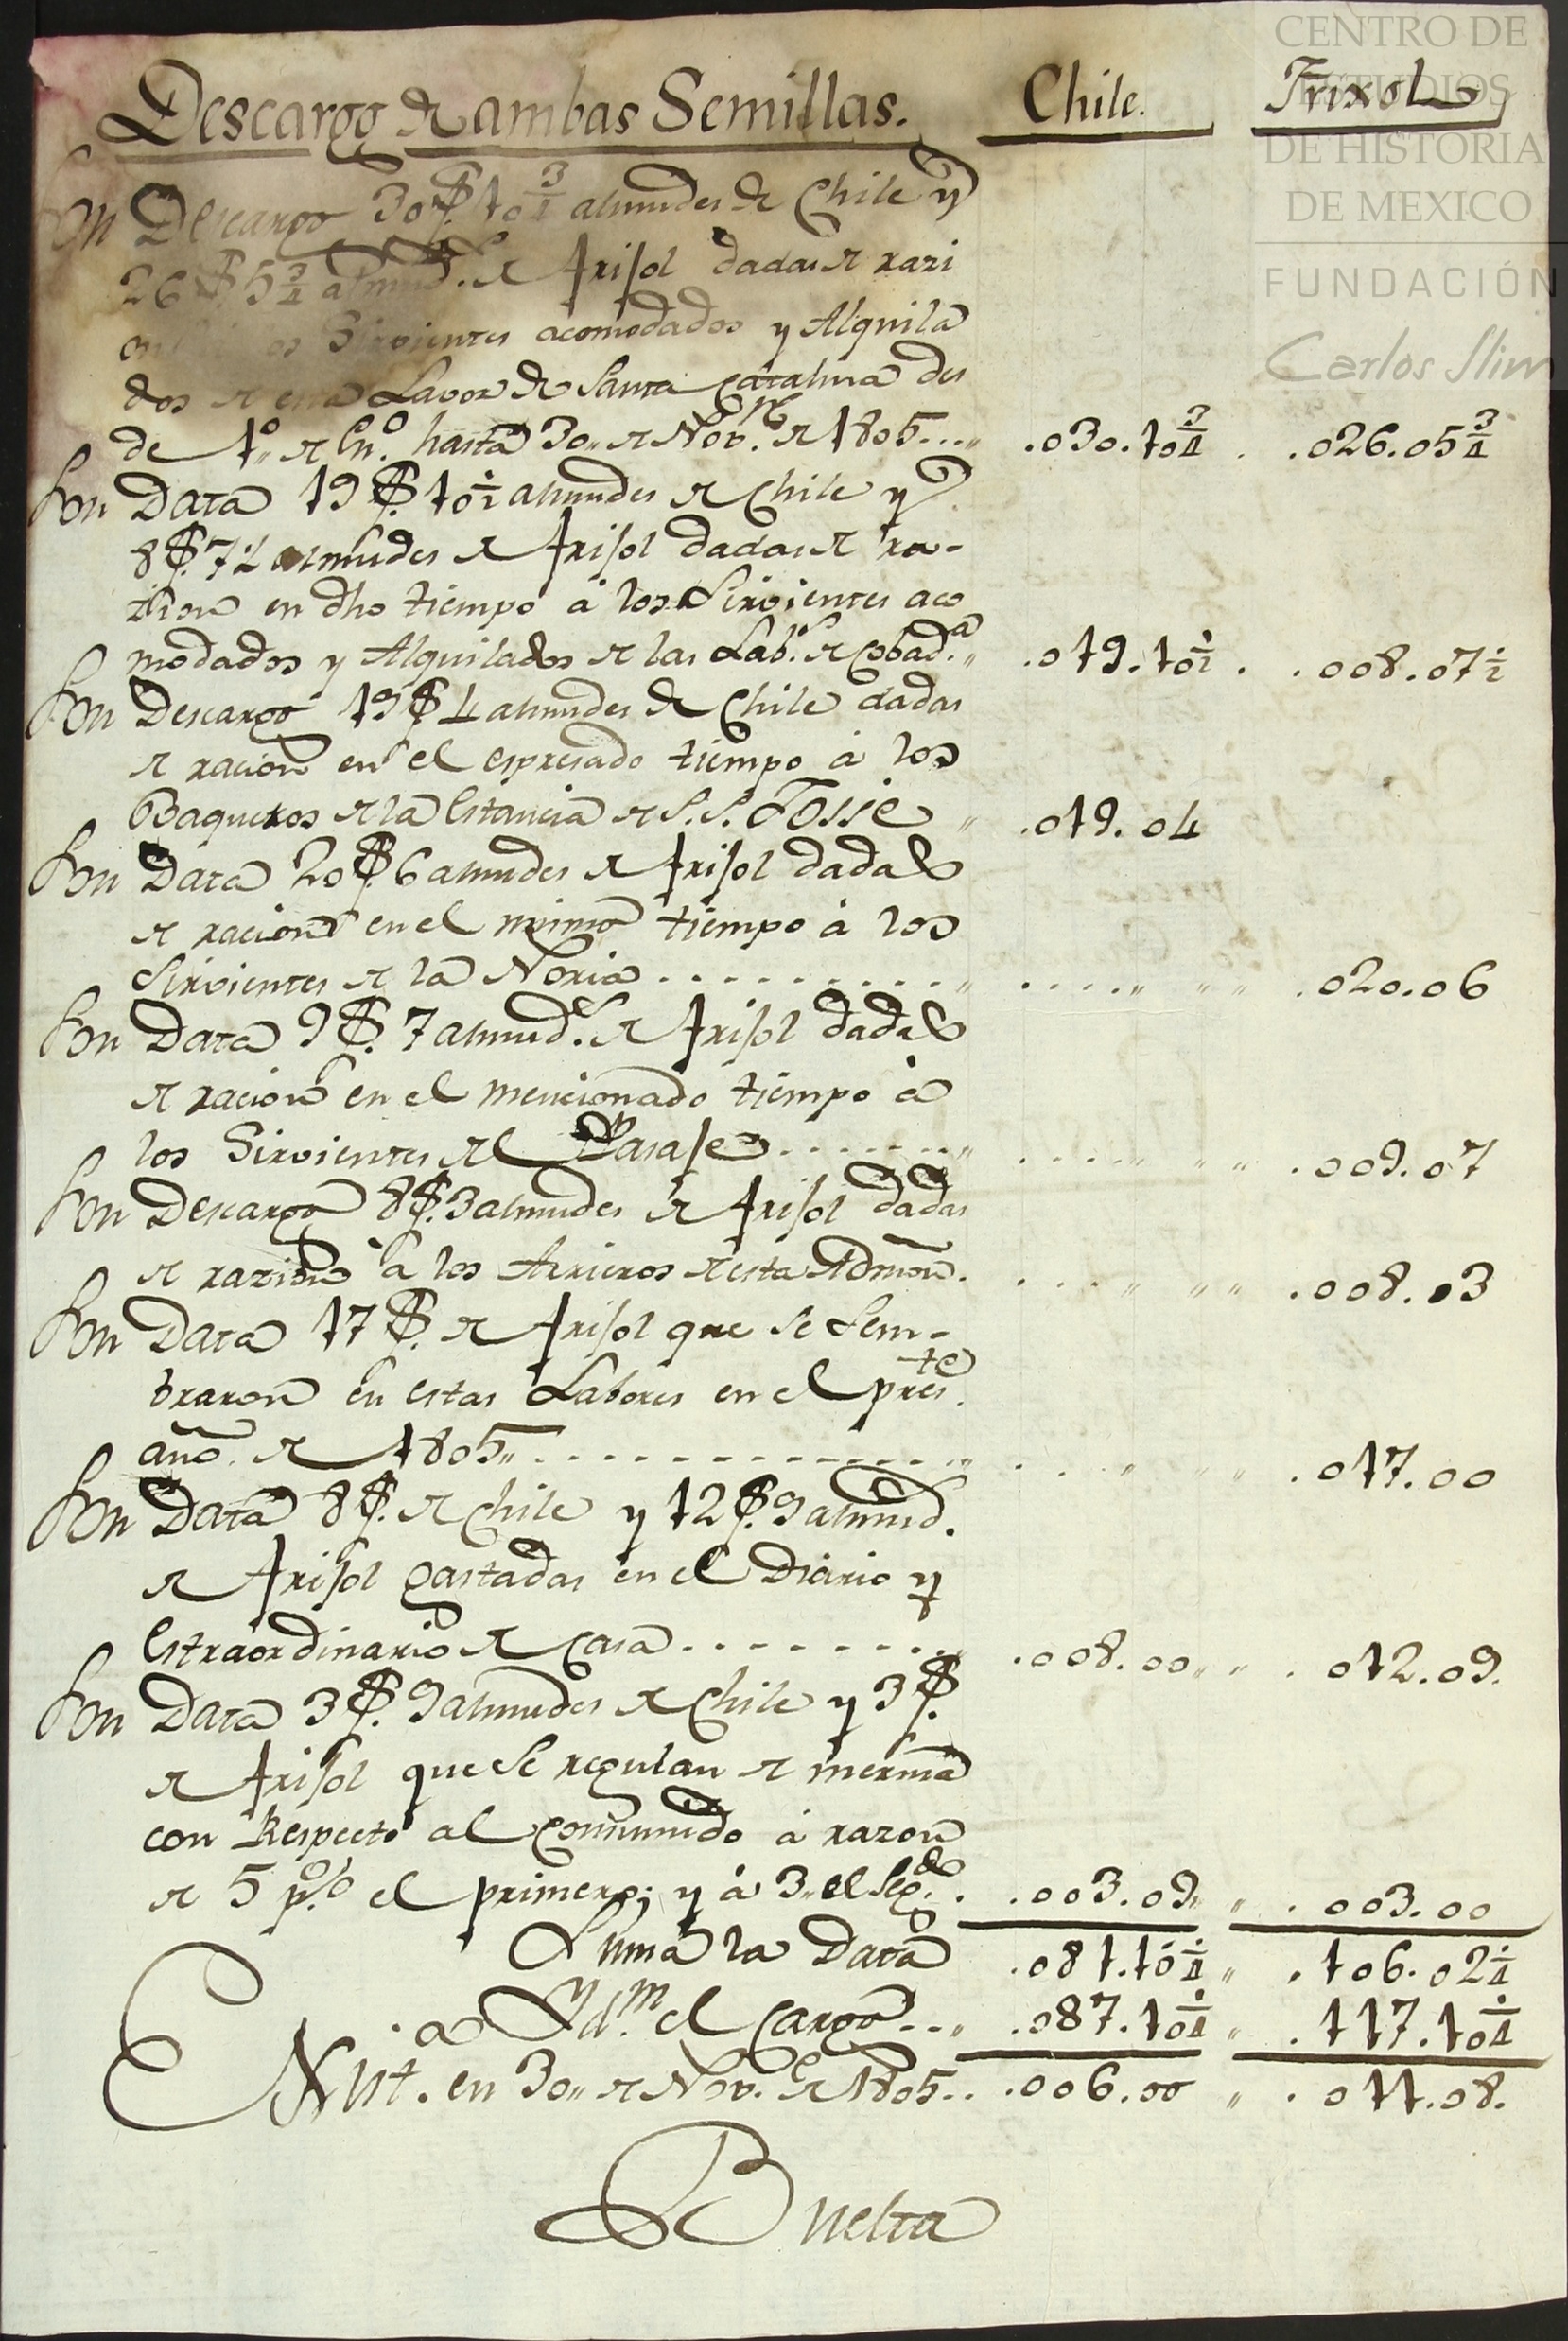 Descargo de ambas Semillas. Chile. Frixol
Son Descargo 30 f. 10 3/4 almudes de Chile y
26 f. 5 3/4 almud.s de Frisol dadas de razi
on os Sirvientes acomodados y Alquila
dos de esta Lavor de Santa Catalina des
de 1.o de En.o hasta 30,, de Nov.re de 1805.... .030.10 3/4 . .026.05 3/4
Son Data 19 f. 10 1/2 almudes de Chile y
8 f. 7 1/2 almudes de Frisol dadas de ra-
zion en dho tiempo á los Sirvientes aco
modados y Alquilados de las Lab.s de Cobad.a ,, .019.10 1/2 . .008.07 1/2
Son Descargo 19 f. 4 almudes de Chile dadas
de racion en el espresado tiempo á los
Baqueros de la Estancia de S.S. Josse ,, .019.04
Son Data 20 f. 6 almudes de Frisol dadas
de racion en el mismo tiempo á los
Sirvientes de la Noria .......... ,, .....,, ,, ,, .020.06
Son Data 9 f. 7 almud.s de Frisol dadas
de racion en el mencionado tiempo á
los Sirvientes del Pasaje ....... ,, .....,, ,, ,, .009.07
Son Descargo 8 f. 3 almudes de Frisol dadas
de razion á los Arrieros de esta Admon. ....,, ,, ,, .008.03
Son Data 17 f. de Frisol que se Sem-
braron en estas Labores en el pres.te
año de 1805,, ............. ,, . . ,, ,, ,, .017.00
Son Data 8 f. de Chile y 12 f. 9 almud.
de Frisol gastadas en el Diario y
Estraordinario de Casa ........ ,, .008.00,, ,, . 012.09.
Son Data 3 f. 9 almudes de Chile y 3 f.
de Frisol que se regulan de merma
con Respecto al Consumido á razon
de 5 p.% el primero; y á 3,, el Seg.do . .003.09,, ,, . 003.00
Suma la Data .081.10 1/4 ,, .106.02 1/4
Yd.m el Cargo ..,, .087.10 1/4 ,, .117.10 1/4
Exist. en 30,, de Nov.e de 1805.. .006.00 ,, . 011.08.
Buelta
CENTRO DE
ESTUDIOS
DE HISTORIA
DE MEXICO
FUNDACIÓN
Carlos Slim